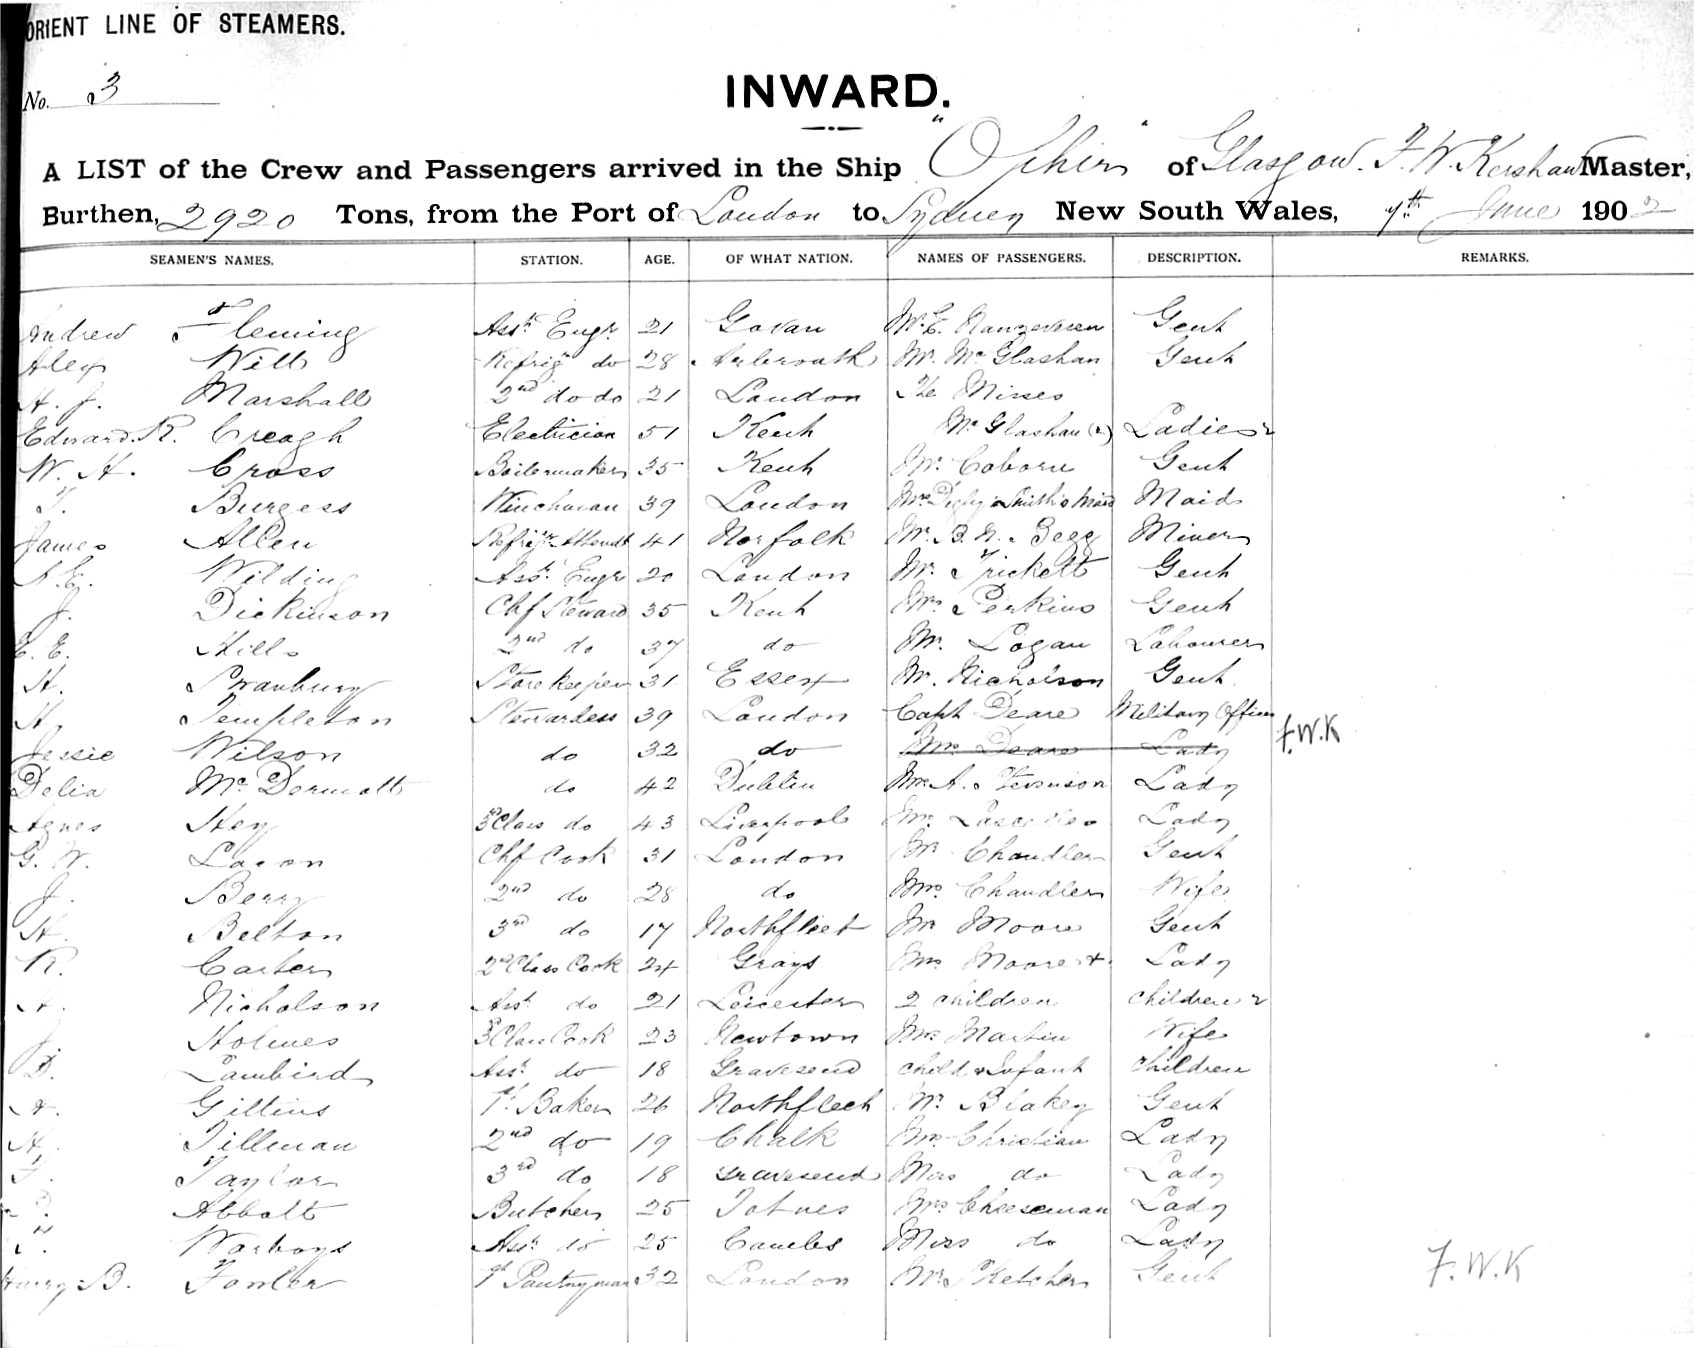 ORIENT LINE OF STEAMERS.
No. 3
INWARD.
A LIST of the Crew and Passengers arrived in the Ship "Ophir" of Glasgow. F. W. Kershaw Master,
Burthen, 2920 Tons, from the Port of London to Sydney New South Wales, 7th June 1902
SEAMEN'S NAMES. STATION. AGE. OF WHAT NATION. NAMES OF PASSENGERS. DESCRIPTION. REMARKS.
Andrew Fleming Asst. Engr. 21 Govan Mr. E. Gent
Alex Will Refrig do 28 Arbroath Mr. McGlashan Gent
H. J. Marshall 2nd do do 21 London The Misses
Edward R. Creagh Electrician 51 Kent McGlashan (2) Ladies 2
W. H. Cross Boilermaker 35 Kent Mr. Coborn Gent
T. Burgess Winchman 39 London Mrs Digby Smith's Maid Maid
James Allen Refrigr. Attendt 41 Norfolk Mr. B. N. Begg Miner
Wilding Asst. Engr 20 London Mr. Trickett Gent
J. Dickinson Chf Steward 35 Kent Mr. Perkins Gent
E. E. Hills 2nd do 37 do Mr. Logan Labourer
H. Storekeeper 31 Essex Mr. Nicholson Gent
H. Templeton Stewardess 39 London Capt Deare Military Officer
Jessie Wilson do 32 do Mrs Deare Lady F.W.K
Delia McDermott do 42 Dublin Mrs A. Lady
Agnes Hey 3rd Class do 43 Liverpool Mrs Lascelles Lady
G. W. Lacon Chf Cook 31 London Mr Chandler Gent
J. Berry 2nd do 28 do Mrs Chandler Wife
H. Belton 3rd do 17 Northfleet Mr Moore Gent
R. Carter 2nd Class Cook 24 Grays Mrs Moore + Lady
Nicholson Asst do 21 Leicester 2 children children 2
J. Holmes 3rd Class Cook 23 Newtown Mrs Martin Wife
Lambird Asst do 18 Gravesend child & Infant children
Gittins 1st Baker 26 Northfleet Mr. Blakey Gent
H. Tillman 2nd do 19 Chalk Mrs Christian Lady
Taylor 3rd do 18 Gravesend Miss do Lady
Abbott Butcher 25 Totnes Mrs Cheeseman Lady
Warboys Asst do 25 Miss do Lady
Henry B. Fowler 1st Pantryman 32 London Mr Sketcher Gent
F.W.K